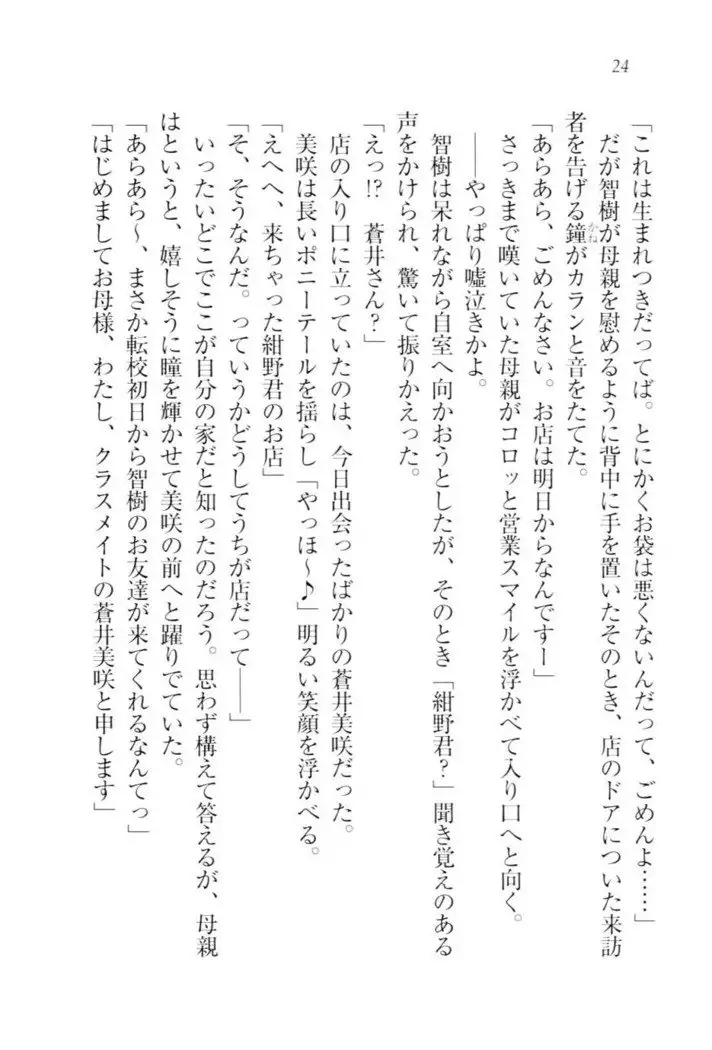 24
「これは生まれつきだってば。とにかくお袋は悪くないんだって、ごめんよ……」
だが智樹が母親を慰めるように背中に手を置いたそのとき、店のドアについた来訪
者を告げる鐘がカランと音をたてた。
かね
「あらあら、ごめんなさい。お店は明日からなんですー」
さっきまで嘆いていた母親がコロッと営業スマイルを浮かべて入り口へと向く。
――やっぱり嘘泣きかよ。
智樹は呆れながら自室へ向かおうとしたが、そのとき「紺野君？」聞き覚えのある
声をかけられ、驚いて振りかえった。
「えっ!?　蒼井さん？」
店の入り口に立っていたのは、今日出会ったばかりの蒼井美咲だった。
美咲は長いポニーテールを揺らし「やっほ～♪」明るい笑顔を浮かべる。
「えへへ、来ちゃった紺野君のお店」
「そ、そうなんだ。っていうかどうしてうちが店だって――」
いったいどこでここが自分の家だと知ったのだろう。思わず構えて答えるが、母親
はというと、嬉しそうに瞳を輝かせて美咲の前へと躍りでていた。
「あらあら～、まさか転校初日から智樹のお友達が来てくれるなんてっ」
「はじめましてお母様、わたし、クラスメイトの蒼井美咲と申します」